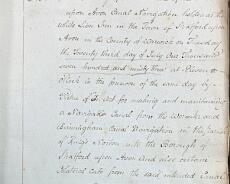 upon Avon Canal Navigation holden at the
White Lion Inn in the Town of Stratford upon
Avon in the County of Warwick on Tuesday
the Twenty third day of July One Thousand
seven hundred and ninety three at Eleven o
Clock in the forenoon of the same day by
Virtue of an Act for making and maintaining
a Navigable Canal from the Worcester and
Birmingham Canal Navigation in the parish
of Kings Norton into the Borough of
Stratford upon Avon and also certain
Collateral Cuts from the said intended Canal